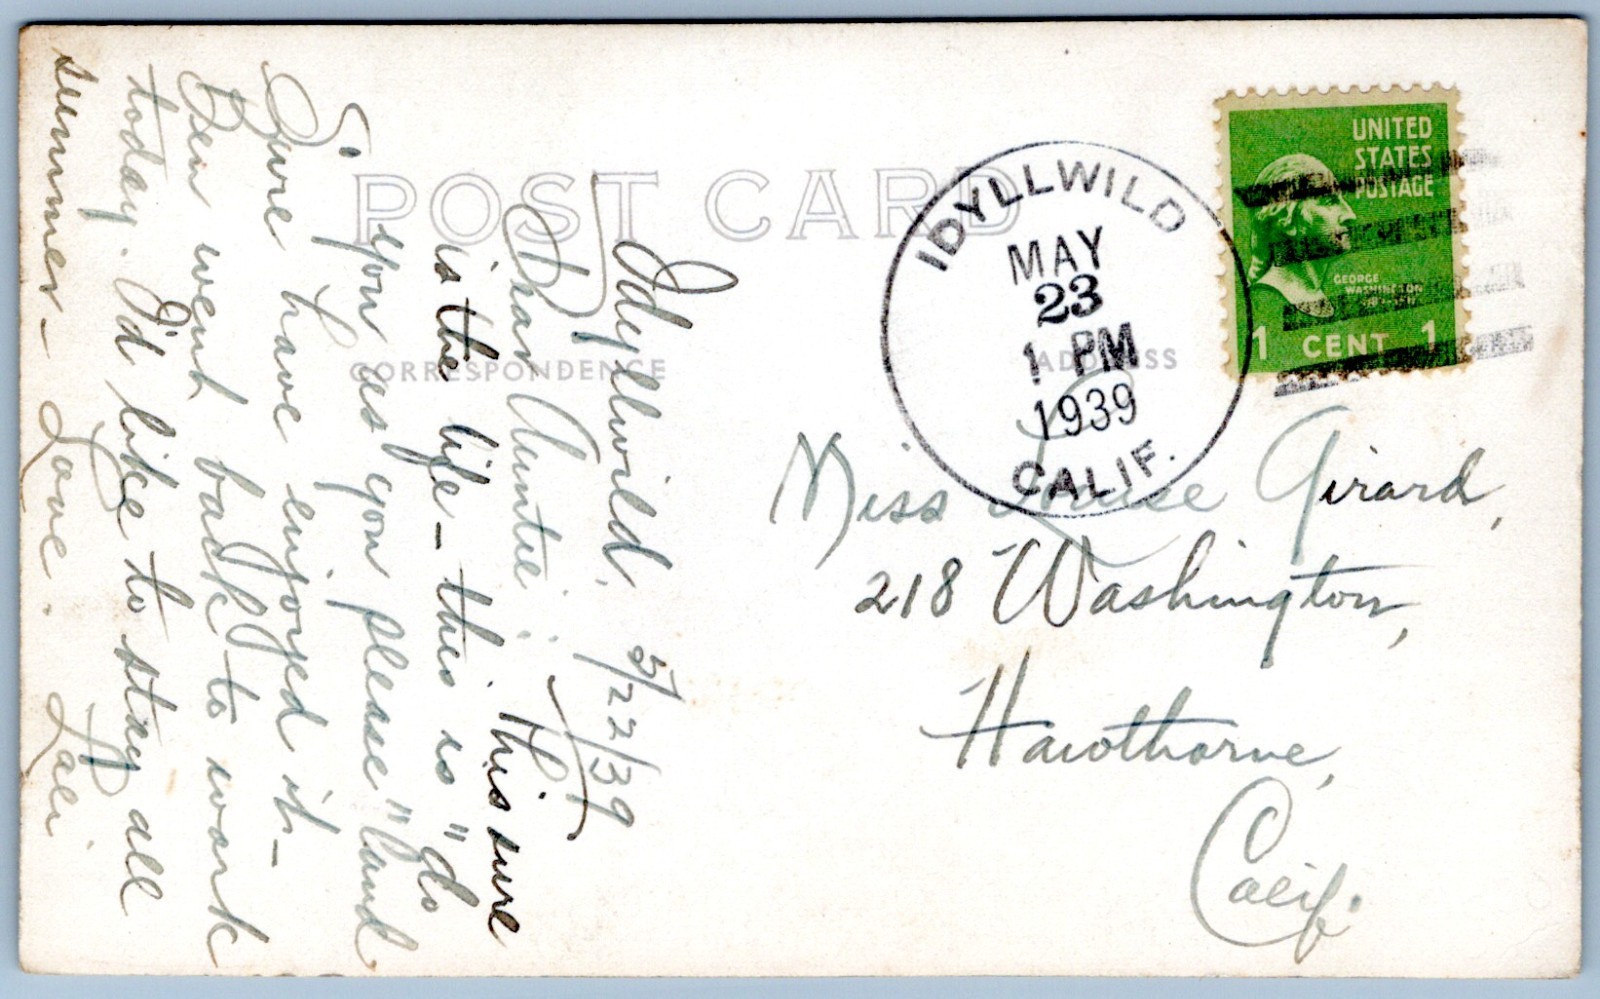 POST CARD
CORRESPONDENCE
ADDRESS
IDYLLWILD
MAY
23
1 PM
1939
CALIF.
UNITED
STATES
POSTAGE
GEORGE
WASHINGTON
1 CENT 1
Idyllwild, 5/22/39
Dear Auntie:
This sure
is the life - this is "do
as you you please" land.
Sure have enjoyed it -
Ben went back to work
today. I'd like to stay all
summer - Love.
Miss Louise Girard,
218 Washington,
Hawthorne,
Calif.